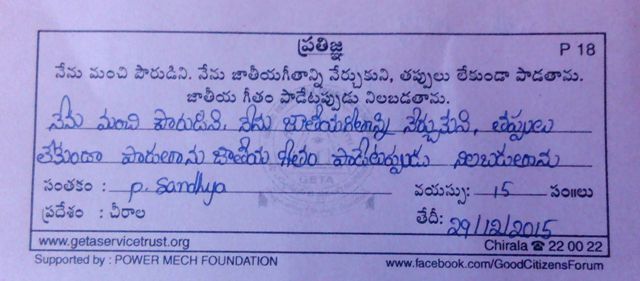 ప్రతిజ్ఞ
P 18
నేను మంచి పౌరుడిని. నేను జాతీయగీతాన్ని నేర్చుకుని, తప్పులు లేకుండా పాడతాను.
జాతీయ గీతం పాడేటప్పుడు నిలబడతాను.
నేను మంచి పౌరుడిని. నేను జాతీయగీతాన్ని నేర్చుకుని, తప్పులు
లేకుండా పాడుతాను జాతీయ గీతం పాడేటప్పుడు నిలబడుతాను
సంతకం : P. Sandhya వయస్సు: 15 సం॥లు
ప్రదేశం : చీరాల తేదీ: 29/12/2015
www.getaservicetrust.org Chirala ☎ 22 00 22
Supported by : POWER MECH FOUNDATION www.facebook.com/GoodCitizensForum
GETA